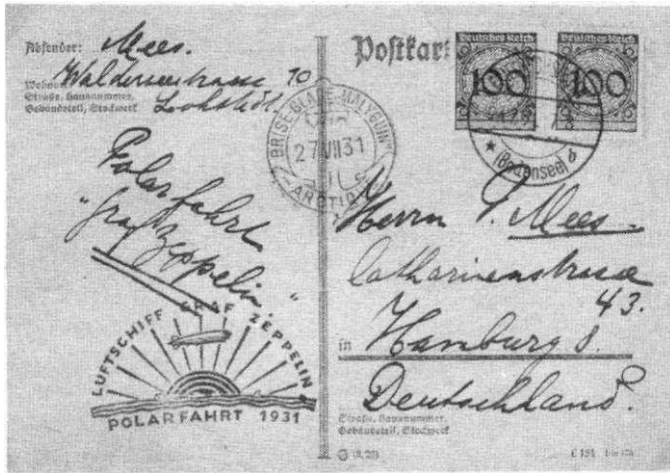 Absender: Mees.
Walderseestrasse 10
Wohnort
Straße, Hausnummer,
Gebäudeteil, Stockwerk
Lokstedt.
Polarfahrt
"Graf
Zeppelin."
LUFTSCHIFF GRAF ZEPPELIN
POLARFAHRT 1931
Postkarte
Deutsches Reich
100
Deutsches Reich
100
(Bodensee) b
BRISE-GLACE "MALYGUIN"
27 VII 31
ARCTIQUE
Herrn P. Mees.
Catharinenstrasse
43.
in Hamburg 8.
Deutschland.
Straße, Hausnummer,
Gebäudeteil, Stockwerk